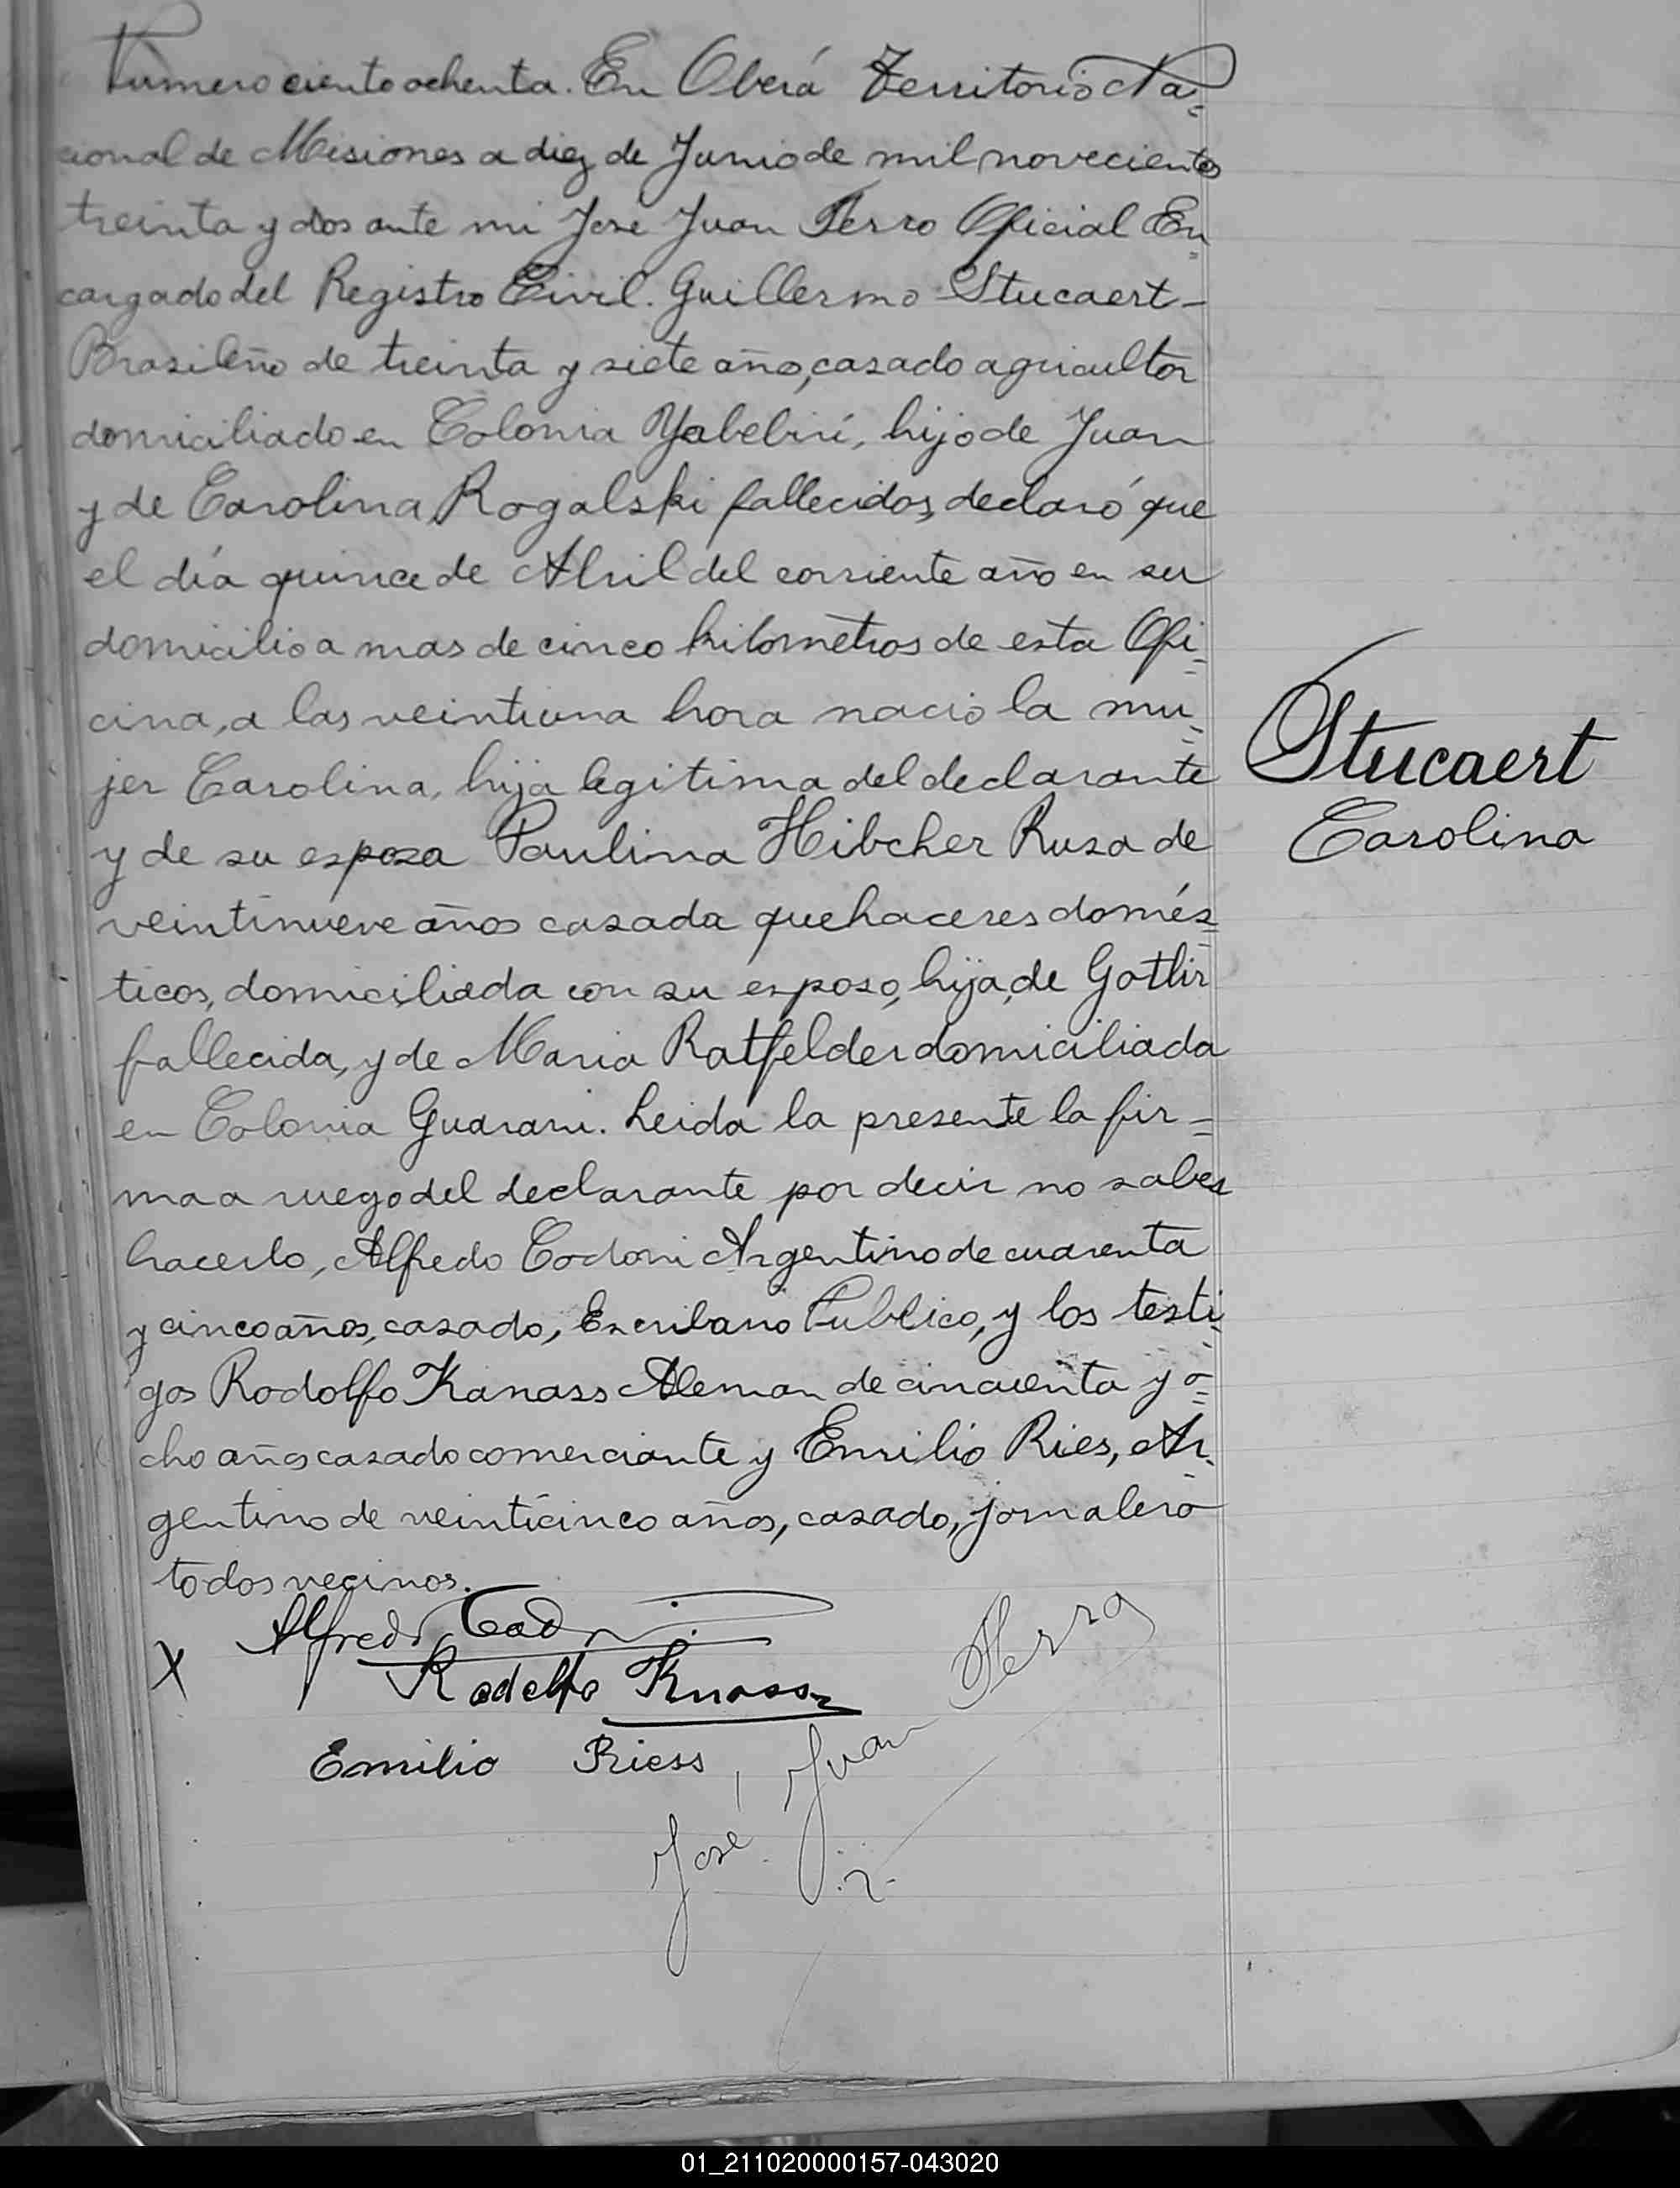 Numero ciento ochenta. En Oberá Territorio Na=
cional de Misiones a diez de Junio de mil novecientos
treinta y dos ante mi Jose Juan Ferro Oficial En=
cargado del Registro Civil. Guillermo Stucaert-
Brasileño de treinta y siete año, casado agricultor
domiciliado en Colonia Yabebirí, hijo de Juan
y de Carolina Rogalski fallecidos, declaró que
el día quince de Abril del corriente año en su
domicilio a mas de cinco kilometros de esta Ofi=
cina, a las veintiuna hora nació la mu=
jer Carolina, hija legitima del declarante
y de su espoza Paulina Hibcher Rusa de
veintinueve años casada quehaceres domés=
ticos, domiciliada con su esposo, hija, de Gotlir
fallecida, y de Maria Ratfelder domiciliada
en Colonia Guarani. Leida la presente la fir=
ma a ruego del declarante por decir no saber
hacerlo, Alfredo Codoni Argentino de cuarenta
y cinco años, casado, Escribano Publico, y los testi=
gos Rodolfo Kanass Aleman de cincuenta y o=
cho años casado comerciante y Emilio Ries, Ar=
gentino de veinticinco años, casado, jornalero
todos vecinos.
Stucaert
Carolina
X Alfredo
Rodolfo Knass
Emilio Riess
José Juan Ferro
01_211020000157-043020